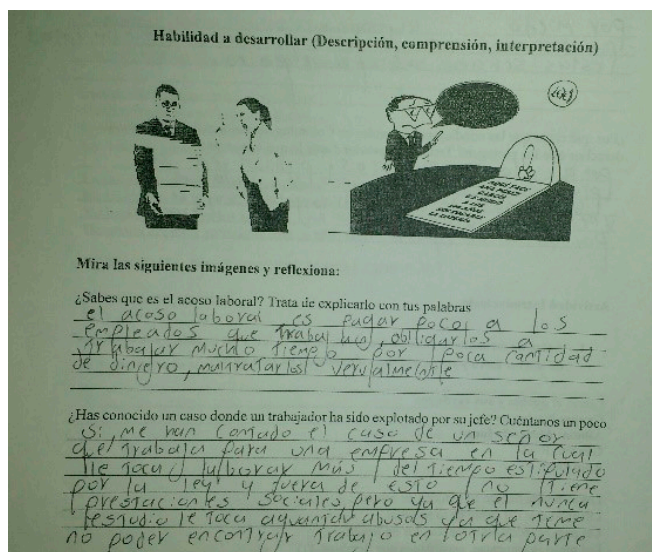 Habilidad a desarrollar (Descripción, comprensión, interpretación)
Mira las siguientes imágenes y reflexiona:
¿Sabes que es el acoso laboral? Trata de explicarlo con tus palabras
el acoso laboral es pagar poco a los
empleados que trabajan, obligarlos a
trabajar mucho tiempo por poca cantidad
de dinero, maltratarlos vervalmente
¿Has conocido un caso donde un trabajador ha sido explotado por su jefe? Cuéntanos un poco
Si, me han contado el caso de un señor
que trabaja para una empresa en la cual
le toca laborar más del tiempo estipulado
por la ley y fuera de esto no tiene
prestaciones sociales, pero ya que el nunca
estudio le toca aguantar abusos ya que teme
no poder encontrar trabajo en otra parte